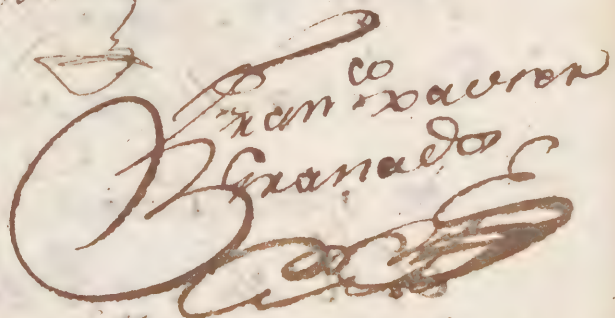 Fran.co Xavier
Granado